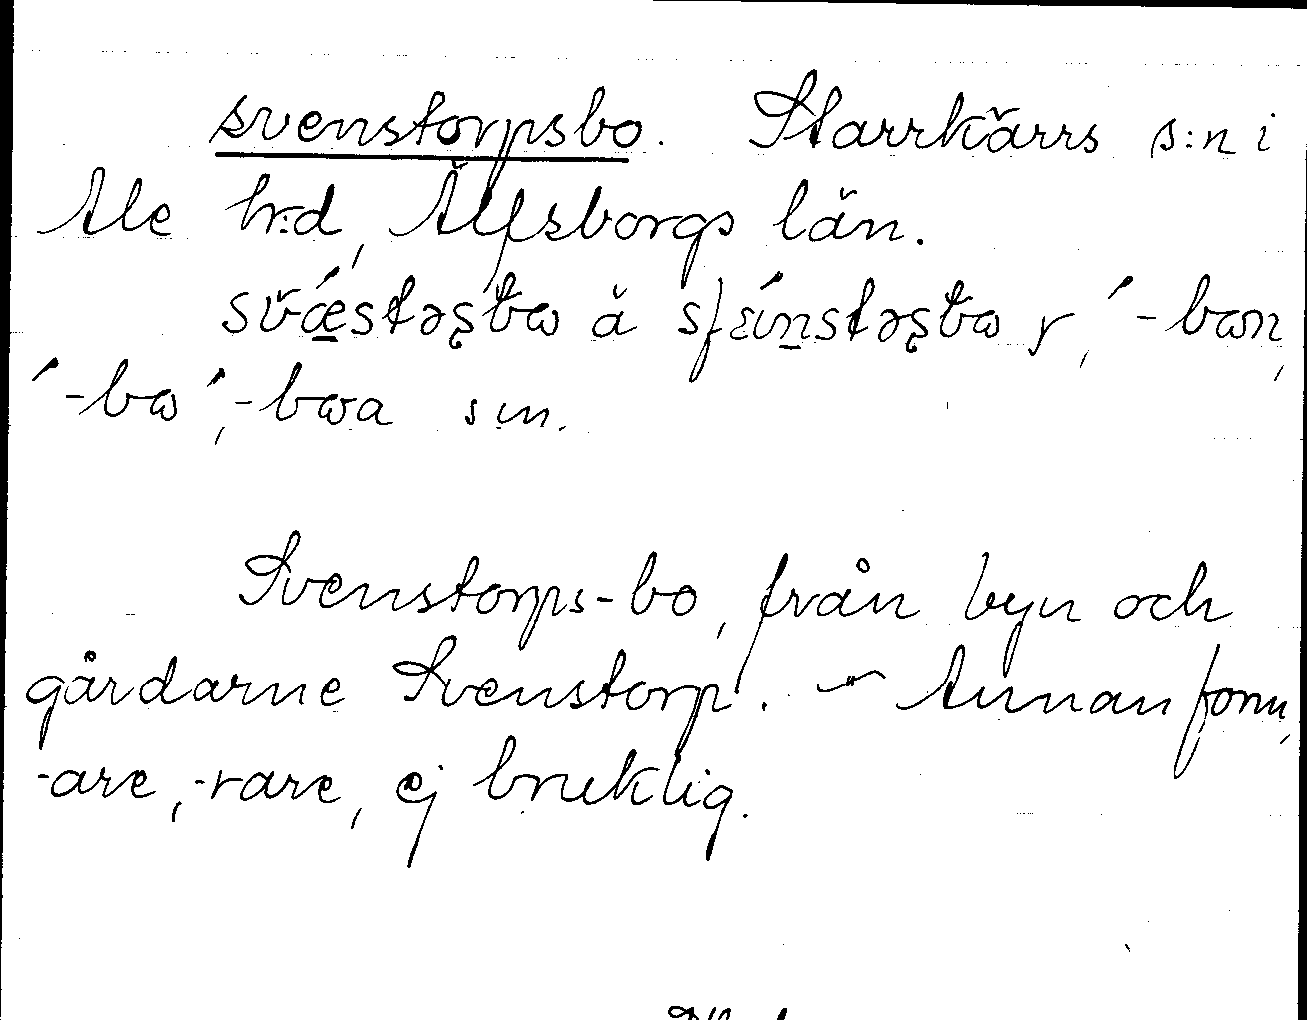 svenstorpsbo. Starrkärrs s:n i
Ale h:d, Älfsborgs län.
å ´-bɷn,
´-bɷ´, -bɷa sm.
Svenstorps-bo, från byn och
gårdarne Svenstorp. — Annan form,
-are, -rare, ej bruklig.